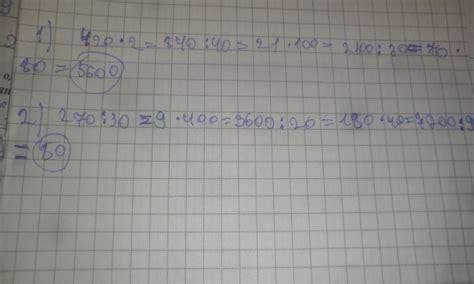 1) 420·2=840:40=21·100=2100:30=70·
80=5600
2) 270:30=9·400=3600:20=180·40=7200:9
=80